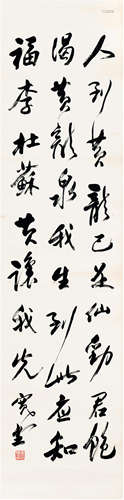 人到黄龍已是仙勸君飽
渴黄龍泉我生到此應知
福李杜蘇黄讓我先寬堂